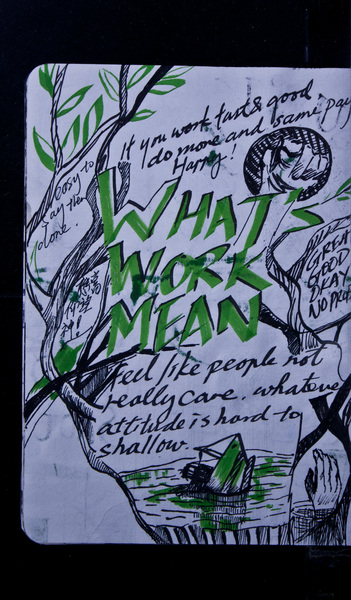 If you work fast & good.
I do more and same pay
Happy!
easy to
Say the
done.
WHAT'S
WORK
MEAN
GREAT
GOOD
OKAY
NO PRO
Feel like people not
really care. whatever
attitude is hard to
shallow.